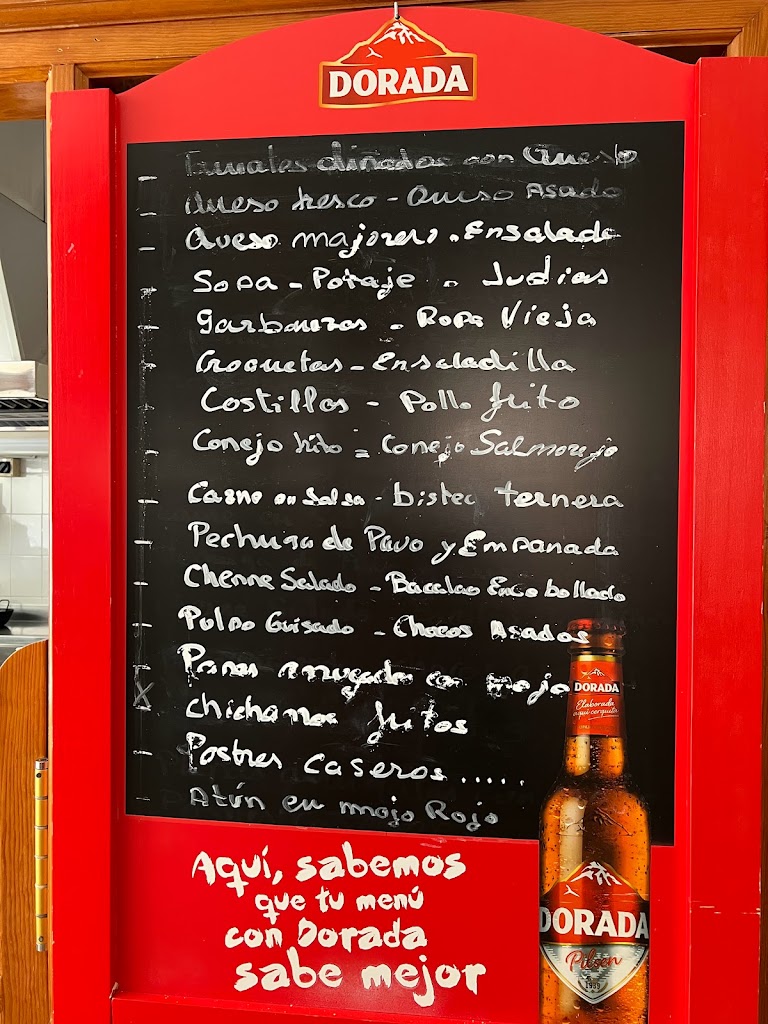 DORADA
Tomates aliñados con Queso
Queso fresco - Queso Asado
Queso majorero - Ensalada
Sopa - Potaje - Judias
Garbanzos - Ropa Vieja
Croquetas - Ensaladilla
Costillas - Pollo frito
Conejo frito = Conejo Salmorejo
Carne en Salsa - bistec ternera
Pechuga de Pavo y Empanada
Cherne Salado - Bacalao Encebollado
Pulpo Guisado - Chocos Asados
Papas arrugadas con mojo
X chicharros fritos
Postres caseros .....
Atún en mojo Rojo
DORADA
Elaborada
aquí cerquita
Aquí, sabemos
que tu menú
con Dorada
sabe mejor
DORADA
Pilsen
1939